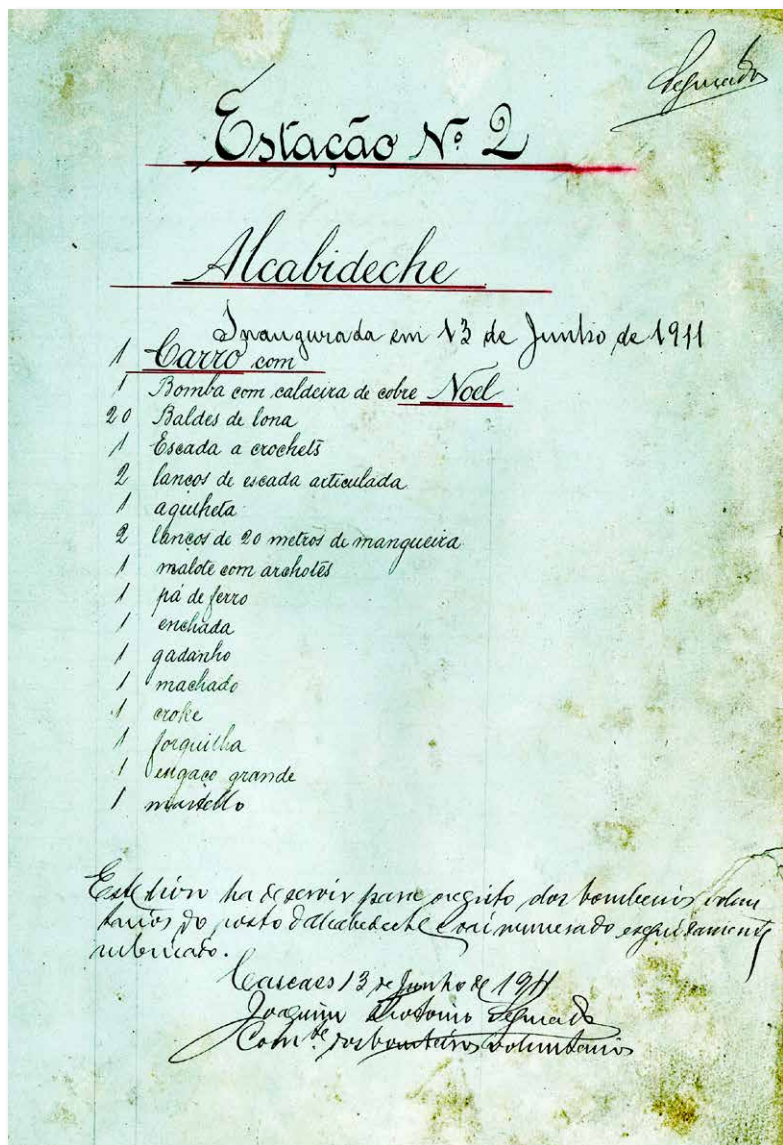 Segurado
Estação Nº 2
Alcabideche
Inaugurada em 13 de Junho de 1911
1 Carro com
1 Bomba com caldeira de cobre Noel
20 Baldes de lona
1 Escada a crochets
2 lanços de escada articulada
1 agulheta
2 lanços de 20 metros de mangueira
1 malote com archotes
1 pá de ferro
1 enchada
1 gadanho
1 machado
1 croke
1 forquilha
1 engaço grande
1 martello
Este livro ha de servir para registo dos bombeiros volun
tarios do posto d'alcabideche e vai numerado
rubricado.
Cascaes 13 de Junho de 1911
Joaquim Theotonio Segurado
Com.te dos bombeiros voluntarios